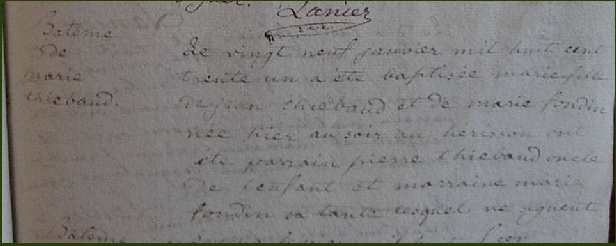 Lanier
Bateme
de
marie
thiebaud.
Le vingt neuf janvier mil huit cent
trente un a été baptisée marie fille
de jean thiebaud et de marie fondin
née hier au soir au herisson ont
été parrain pierre thiebaud oncle
de l'enfant et marraine marie
fondin sa tante lesquel ne signent
Bateme